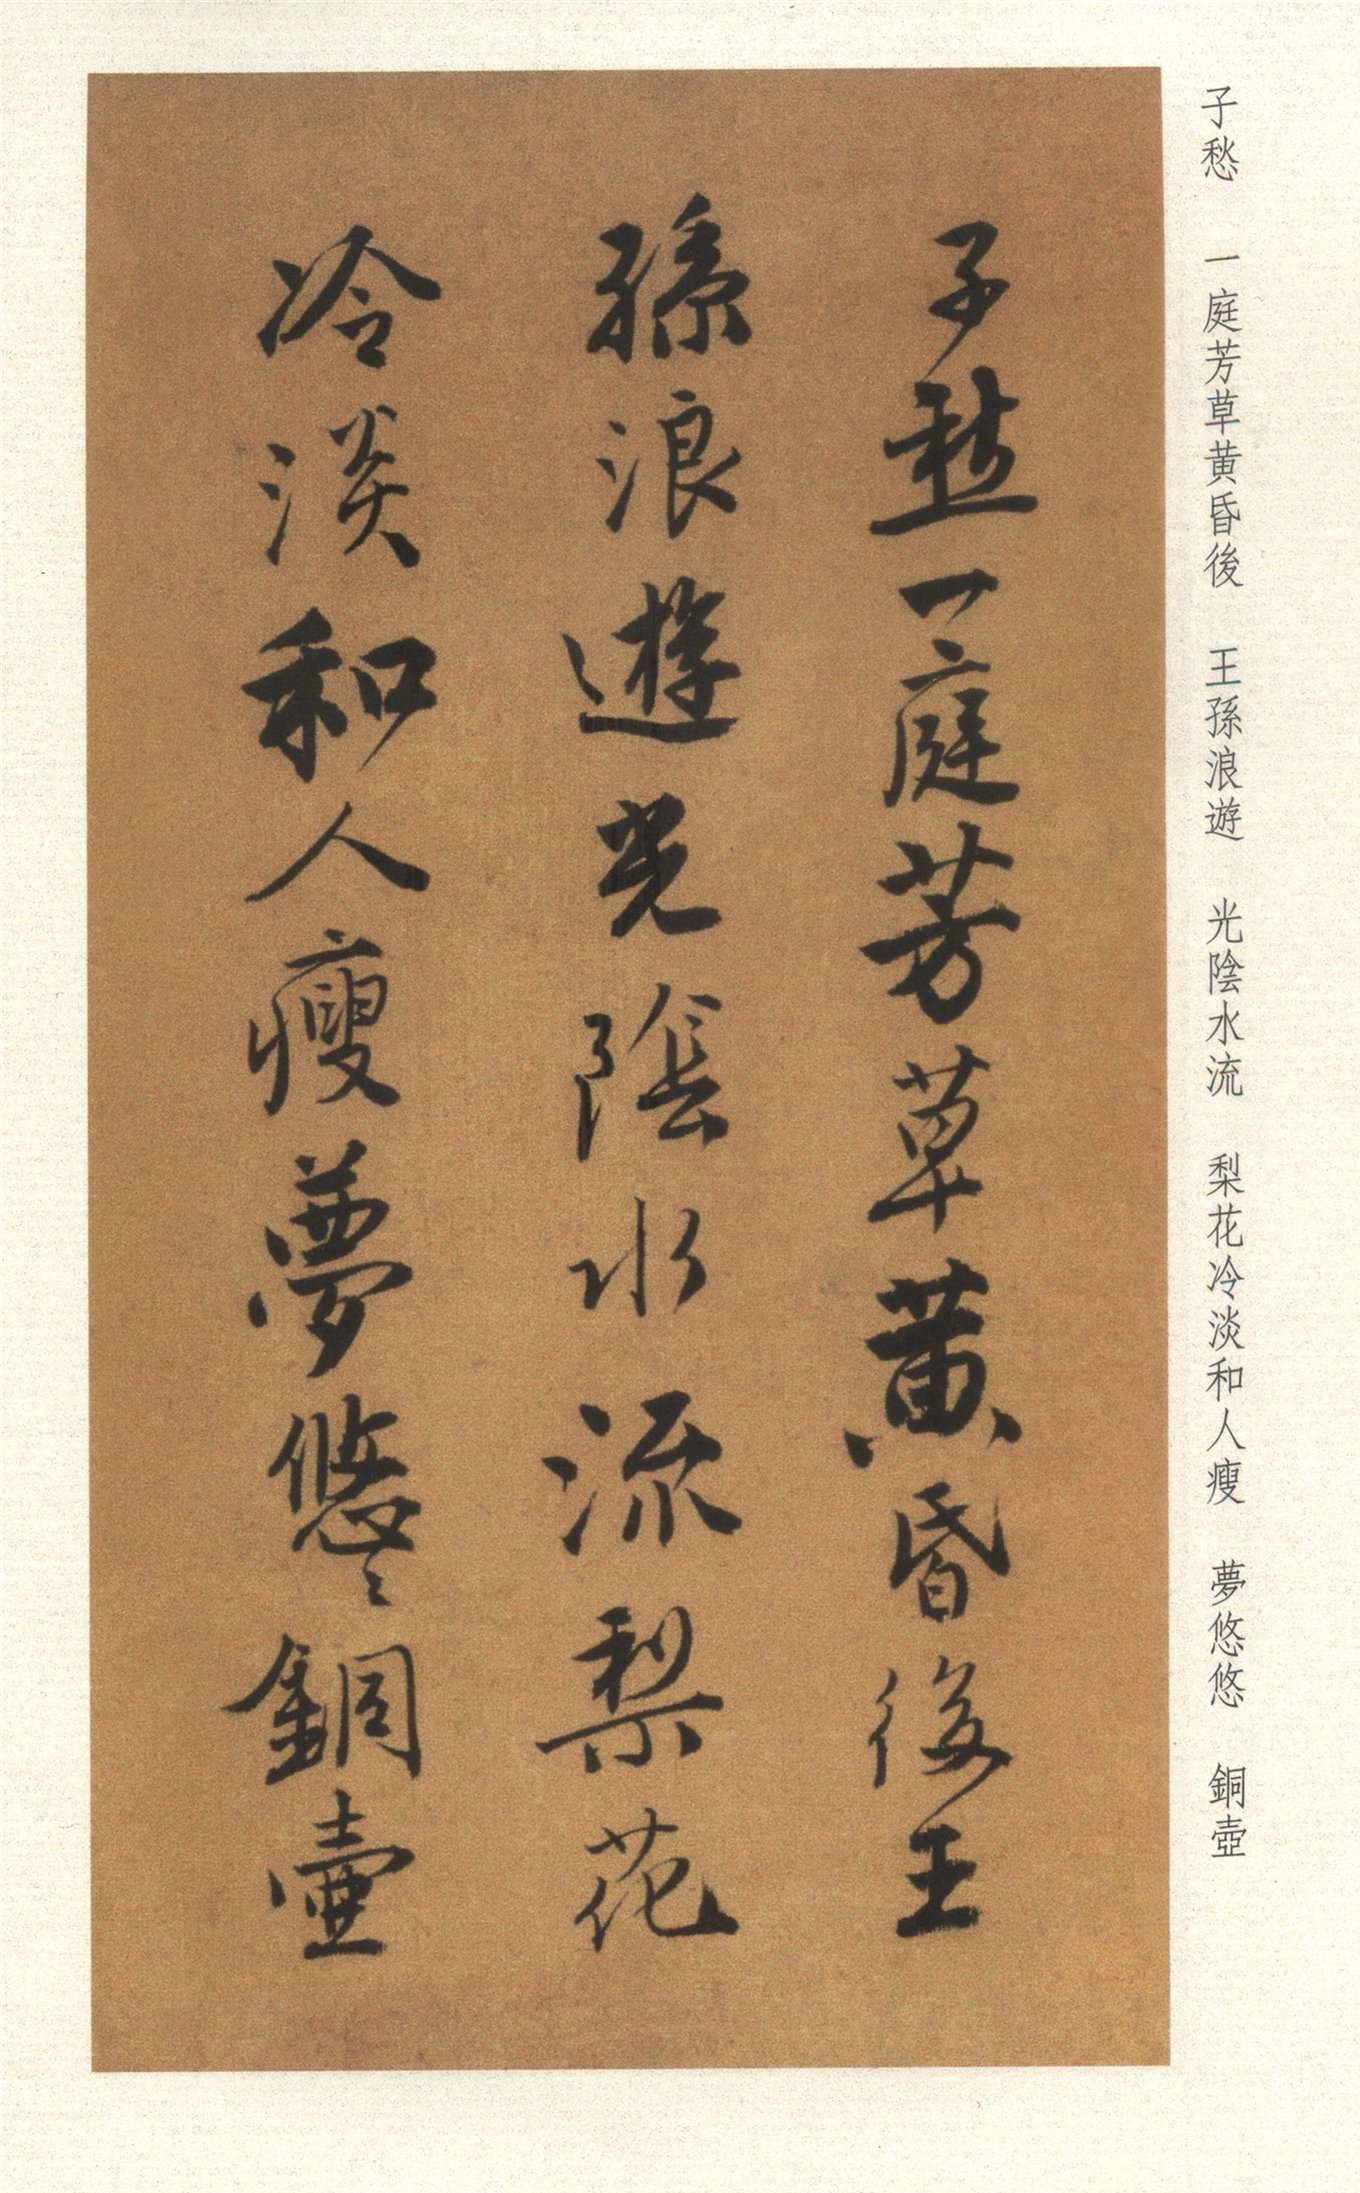 子愁　一庭芳草黄昏後　王孫浪遊　光陰水流　梨花冷淡和人瘦　夢悠悠　銅壺
子愁一庭芳草黄昏後王
孫浪遊光陰水流梨花
冷淡和人瘦夢悠〻銅壺